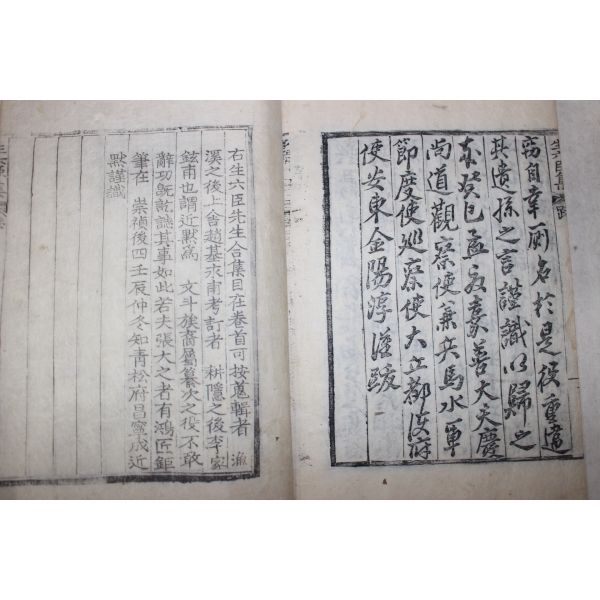 生六臣集 跋
窃自幸厠名於是役重違
其遺孫之言謹識以歸之
歲癸巳孟夏嘉善大夫慶
尙道觀察使兼兵馬水軍
節度使巡察使大丘都護府
使安東金陽淳謹跋
右生六臣先生合集目在卷首可按蒐輯者 漁
溪之後上舍趙基永甫考訂者 耕隱之後李家
鉉甫也謂近默爲 文斗族裔屬纂次之役不敢
辭功旣訖誌其事如此若夫張大之者有鴻匠鉅
筆在 崇禎後四壬辰仲冬知青松府昌寧成近
默謹識